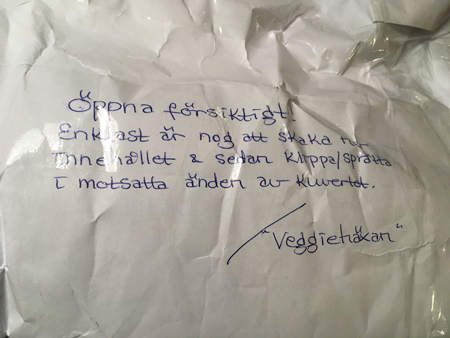 Öppna försiktigt!
Enklast är nog att skaka ner
innehållet & sedan klippa/sprätta
i motsatta änden av kuvertet.
/"Veggiehåkan"